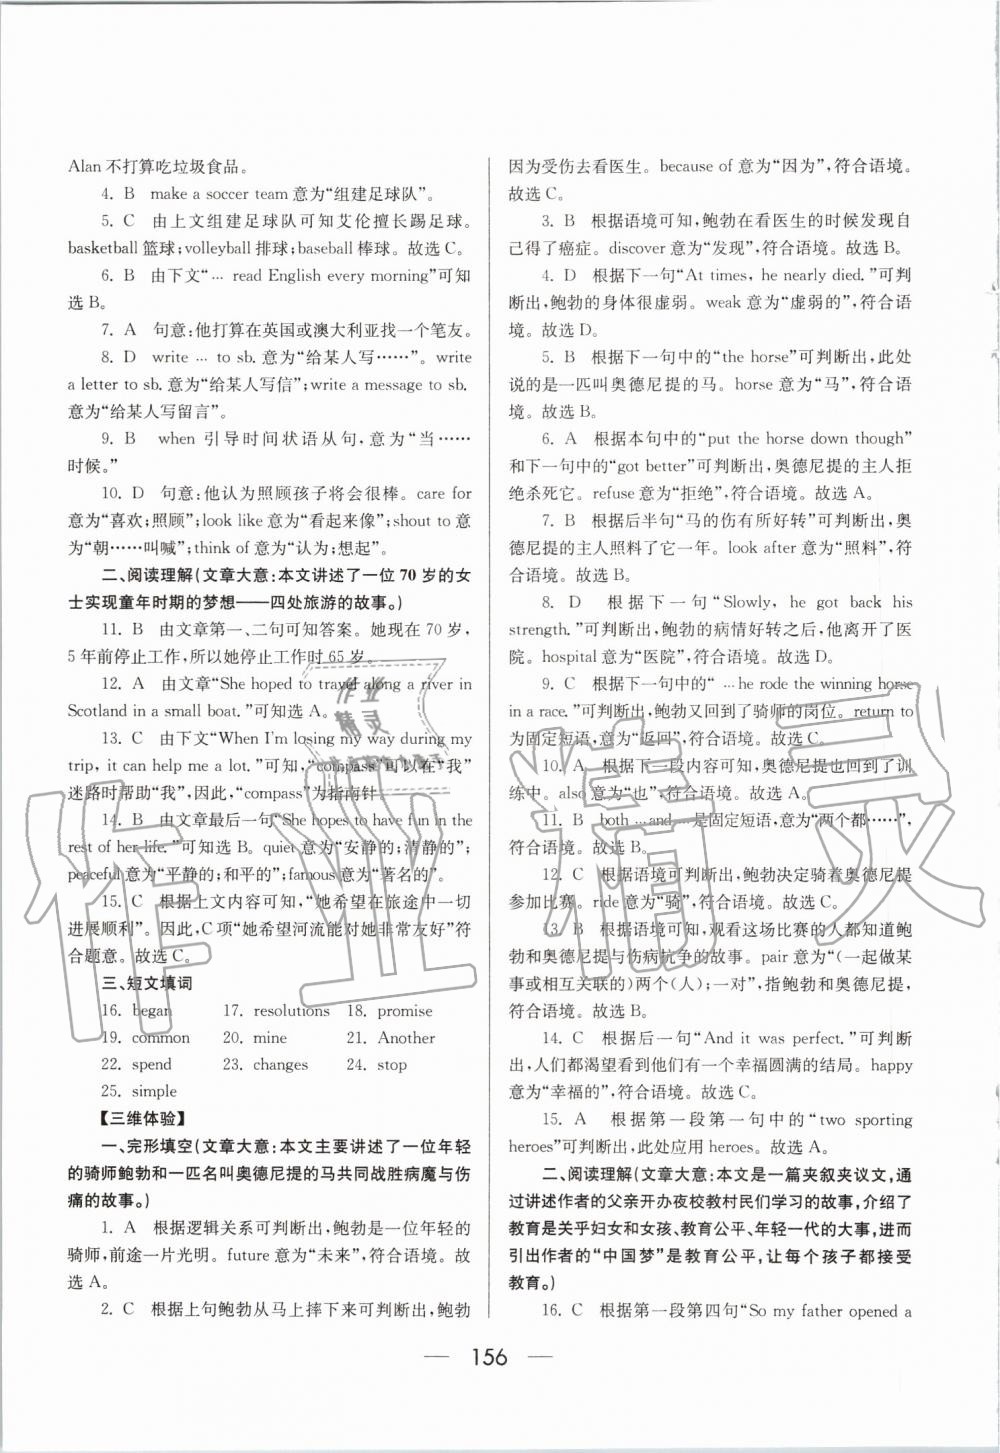 Alan 不打算吃垃圾食品。
4. B make a soccer team 意为“组建足球队”。
5. C 由上文组建足球队可知艾伦擅长踢足球。
basketball 篮球;volleyball 排球;baseball 棒球。故选 C。
6. B 由下文“… read English every morning”可知
选 B。
7. A 句意:他打算在英国或澳大利亚找一个笔友。
8. D write … to sb. 意为“给某人写……”。write
a letter to sb. 意为“给某人写信”;write a message to sb.
意为“给某人写留言”。
9. B when 引导时间状语从句,意为“当……
时候。”
10. D 句意:他认为照顾孩子将会很棒。care for
意为“喜欢;照顾”;look like 意为“看起来像”;shout to 意
为“朝……叫喊”;think of 意为“认为;想起”。
二、阅读理解(文章大意:本文讲述了一位 70 岁的女
士实现童年时期的梦想——四处旅游的故事。)
11. B 由文章第一、二句可知答案。她现在 70 岁,
5 年前停止工作,所以她停止工作时 65 岁。
12. A 由文章“She hoped to travel along a river in
Scotland in a small boat.”可知选 A。
13. C 由下文“When I'm losing my way during my
trip, it can help me a lot.”可知,“compass”可以在“我”
迷路时帮助“我”,因此,“compass”为指南针。
14. B 由文章最后一句“She hopes to have fun in the
rest of her life.”可知选 B。quiet 意为“安静的;清静的”;
peaceful 意为“平静的;和平的”;famous 意为“著名的”。
15. C 根据上文内容可知,“她希望在旅途中一切
进展顺利”。因此,C 项“她希望河流能对她非常友好”符
合题意。故选 C。
三、短文填词
16. began 17. resolutions 18. promise
19. common 20. mine 21. Another
22. spend 23. changes 24. stop
25. simple
【三维体验】
一、完形填空(文章大意:本文主要讲述了一位年轻
的骑师鲍勃和一匹名叫奥德尼提的马共同战胜病魔与伤
痛的故事。)
1. A 根据逻辑关系可判断出,鲍勃是一位年轻的
骑师,前途一片光明。future 意为“未来”,符合语境。故
选 A。
2. C 根据上句鲍勃从马上摔下来可判断出,鲍勃
因为受伤去看医生。because of 意为“因为”,符合语境。
故选 C。
3. B 根据语境可知,鲍勃在看医生的时候发现自
己得了癌症。discover 意为“发现”,符合语境。故选 B。
4. D 根据下一句“At times, he nearly died.”可判
断出,鲍勃的身体很虚弱。weak 意为“虚弱的”,符合语
境。故选 D。
5. B 根据下一句中的“the horse”可判断出,此处
说的是一匹叫奥德尼提的马。horse 意为“马”,符合语
境。故选 B。
6. A 根据本句中的“put the horse down though”
和下一句中的“got better”可判断出,奥德尼提的主人拒
绝杀死它。refuse 意为“拒绝”,符合语境。故选 A。
7. B 根据后半句“马的伤有所好转”可判断出,奥
德尼提的主人照料了它一年。look after 意为“照料”,符
合语境。故选 B。
8. D 根据下一句“Slowly, he got back his
strength.”可判断出,鲍勃的病情好转之后,他离开了医
院。hospital 意为“医院”,符合语境。故选 D。
9. C 根据下一句中的“ …he rode the winning horse
in a race.”可判断出,鲍勃又回到了骑师的岗位。return to
为固定短语,意为“返回”,符合语境。故选 C。
10. A 根据下一段内容可知,奥德尼提也回到了训
练中。also 意为“也”,符合语境。故选 A。
11. B both …and …是固定短语,意为“两个都……”,
符合语境。故选 B。
12. C 根据语境可判断出,鲍勃决定骑着奥德尼提
参加比赛。ride 意为“骑”,符合语境。故选 C。
13. B 根据语境可知,观看这场比赛的人都知道鲍
勃和奥德尼提与伤病抗争的故事。pair 意为“(一起做某
事或互相关联的)两个(人);一对”,指鲍勃和奥德尼提。
故选 B。
14. C 根据后一句“And it was perfect.”可判断
出,人们都渴望看到他们有一个幸福圆满的结局。happy
意为“幸福的”,符合语境。故选 C。
15. A 根据第一段第一句中的“two sporting
heroes”可判断出,此处应用 heroes。故选 A。
二、阅读理解(文章大意:本文是一篇夹叙夹议文,通
过讲述作者的父亲开办夜校教村民们学习的故事,介绍了
教育是关乎妇女和女孩、教育公平、年轻一代的大事,进而
引出作者的“中国梦”是教育公平,让每个孩子都接受
教育。)
16. C 根据第一段第四句“So my father opened a
— 156 —
作业精灵
作业
精灵